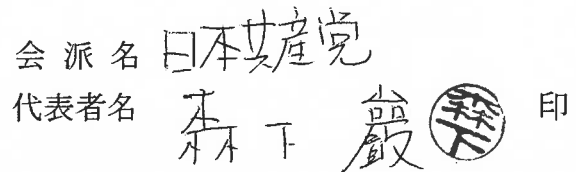 会派名 日本共産党
代表者名 森下 巖 森下 印